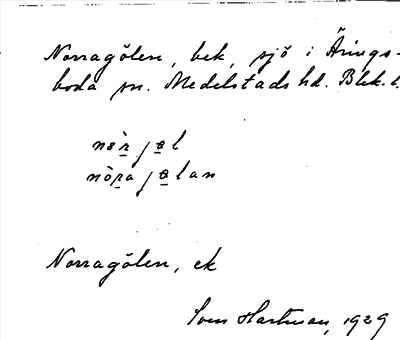 Norragölen, bek, sjö i Ärings-
boda sn. Medelstads hd. Blek. l.
nòr̲ jə̲l
nòr̲a jə̲lan
Norragölen, ek
Sven Hartman, 1929